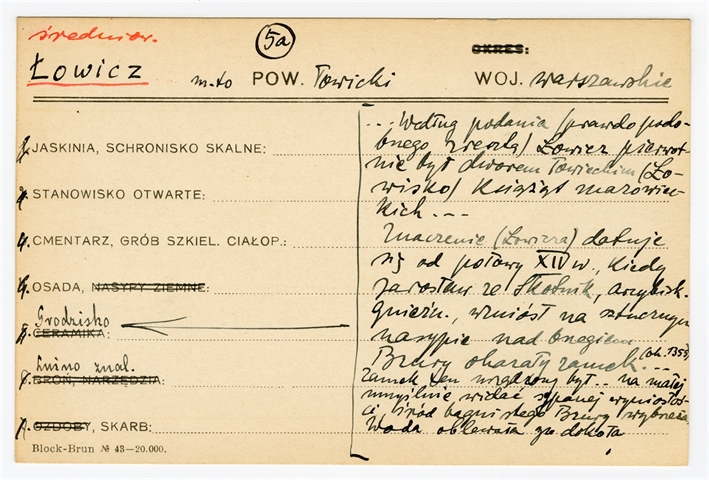 średniow.
5a
OKRES:
Łowicz m-to POW. Łowicki WOJ. warszawskie
JASKINIA, SCHRONISKO SKALNE:
STANOWISKO OTWARTE:
CMENTARZ, GRÓB SZKIEL. CIAŁOP.:
OSADA, NASYPY ZIEMNE:
Grodzisko
CERAMIKA:
Luźno znal.
BROŃ, NARZĘDZIA:
OZDOBY, SKARB:
Block-Brun № 43–20.000.
... Według podania (prawdopodo-
bnego zresztą) Łowicz pierwot-
nie był dworem łowieckim (Ło-
wisko) Książąt mazowiec-
kich ...
Znaczenie (Łowicza) datuje
się od połowy XIV w., kiedy
Jarosław ze Skotnik, arcybisk.
Gnieźn., wzniósł na sztucznym
nasypie nad brzegiem
Bzury okazały zamek ... (ok. 1355)
Zamek ten urządzony był .. na małej
umyślnie widać sypanej wyniosłoś-
ci, śród bagnistego Bzury wybrzeża.
Woda oblewała go dokoła